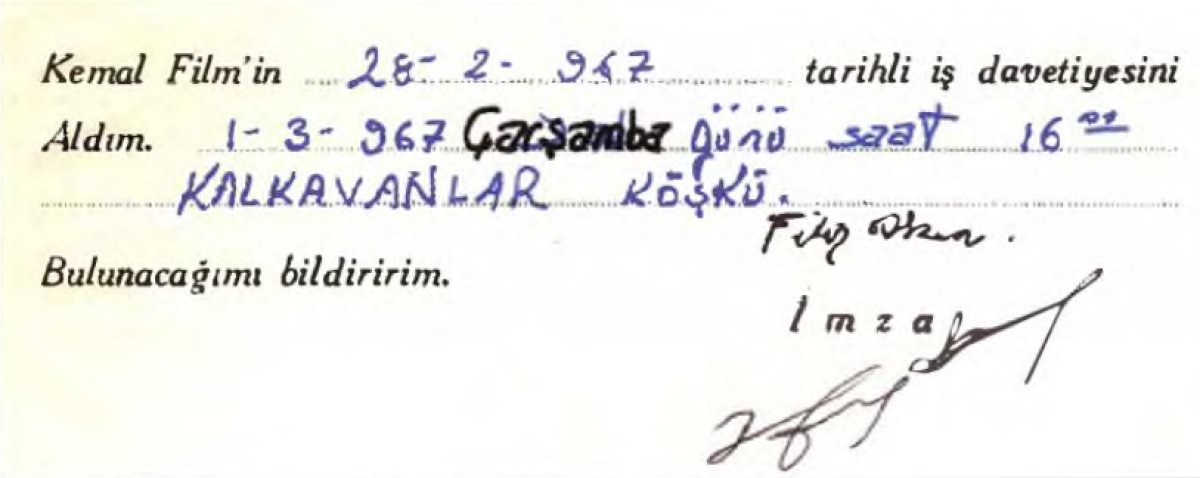 Kemal Film'in 28- 2- 967 tarihli iş davetiyesini
Aldım. 1- 3- 967 Çarşamba günü saat 16 00
KALKAVANLAR KÖŞKÜ.
Filiz Akın.
Bulunacağımı bildiririm.
İmza